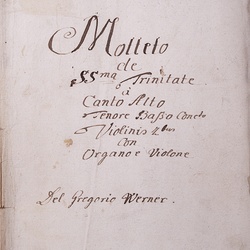 Motteto
de
SSma Trinitate
à
Canto Alto
Tenore Basso Concto
Violinis 2bus
con
Organo e Violone
Del Gregorio Werner.